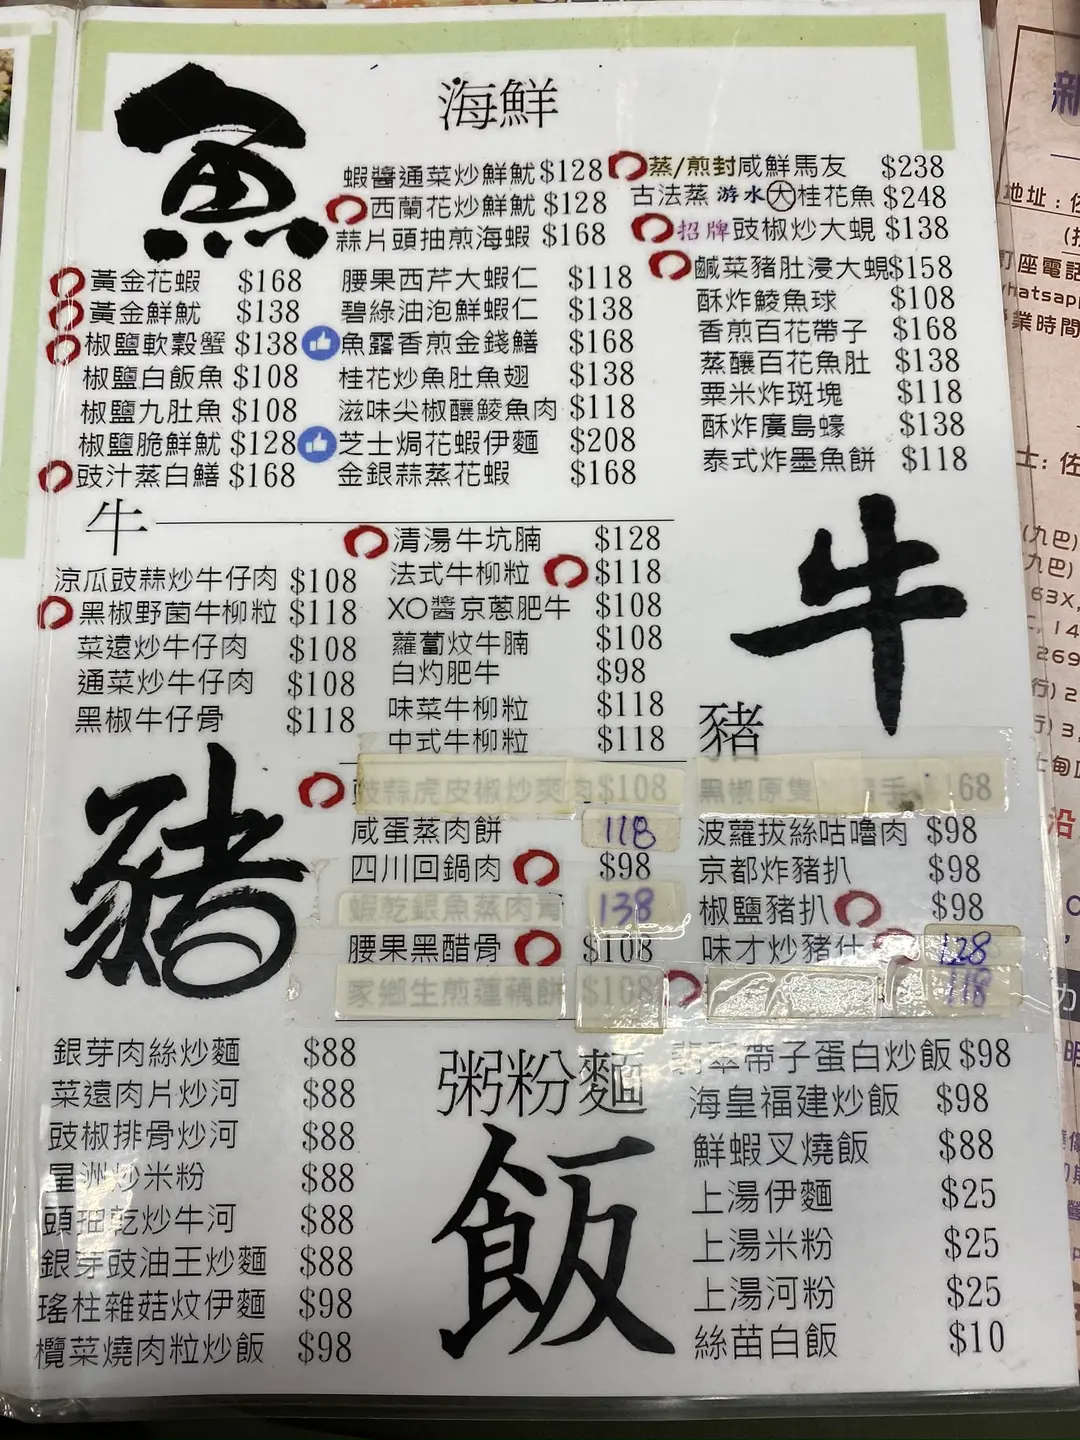 魚
海鮮
蝦醬通菜炒鮮魷 $128
西蘭花炒鮮魷 $128
蒜片頭抽煎海蝦 $168
黃金花蝦 $168
黃金鮮魷 $138
椒鹽軟殼蟹 $138
椒鹽白飯魚 $108
椒鹽九肚魚 $108
椒鹽脆鮮魷 $128
豉汁蒸白鱔 $168
腰果西芹大蝦仁 $118
碧綠油泡鮮蝦仁 $138
魚露香煎金錢鱔 $168
桂花炒魚肚魚翅 $138
滋味尖椒釀鯪魚肉 $118
芝士焗花蝦伊麵 $208
金銀蒜蒸花蝦 $168
蒸/煎封咸鮮馬友 $238
古法蒸 游水 大 桂花魚 $248
招牌豉椒炒大蜆 $138
鹹菜豬肚浸大蜆 $158
酥炸鯪魚球 $108
香煎百花帶子 $168
蒸釀百花魚肚 $138
粟米炸斑塊 $118
酥炸廣島蠔 $138
泰式炸墨魚餅 $118
牛
涼瓜豉蒜炒牛仔肉 $108
黑椒野菌牛柳粒 $118
菜遠炒牛仔肉 $108
通菜炒牛仔肉 $108
黑椒牛仔骨 $118
清湯牛坑腩 $128
法式牛柳粒 $118
XO醬京蔥肥牛 $108
蘿蔔炆牛腩 $108
白灼肥牛 $98
味菜牛柳粒 $118
中式牛柳粒 $118
牛
豬
豬
豉蒜虎皮椒炒爽肉 $108
咸蛋蒸肉餅 118
四川回鍋肉 $98
蝦乾銀魚蒸肉青 138
腰果黑醋骨 $108
家鄉生煎蓮藕餅 $108
黑椒原隻 手 168
波蘿拔絲咕嚕肉 $98
京都炸豬扒 $98
椒鹽豬扒 $98
味才炒豬什 128
118
銀芽肉絲炒麵 $88
菜遠肉片炒河 $88
豉椒排骨炒河 $88
星洲炒米粉 $88
頭抽乾炒牛河 $88
銀芽豉油王炒麵 $88
瑤柱雜菇炆伊麵 $98
欖菜燒肉粒炒飯 $98
粥粉麵
飯
翡翠帶子蛋白炒飯 $98
海皇福建炒飯 $98
鮮蝦叉燒飯 $88
上湯伊麵 $25
上湯米粉 $25
上湯河粉 $25
絲苗白飯 $10
新
地址：佐
訂座電話
whatsap
業時間
士：佐
(九巴)
九巴)
63X,
269
沿